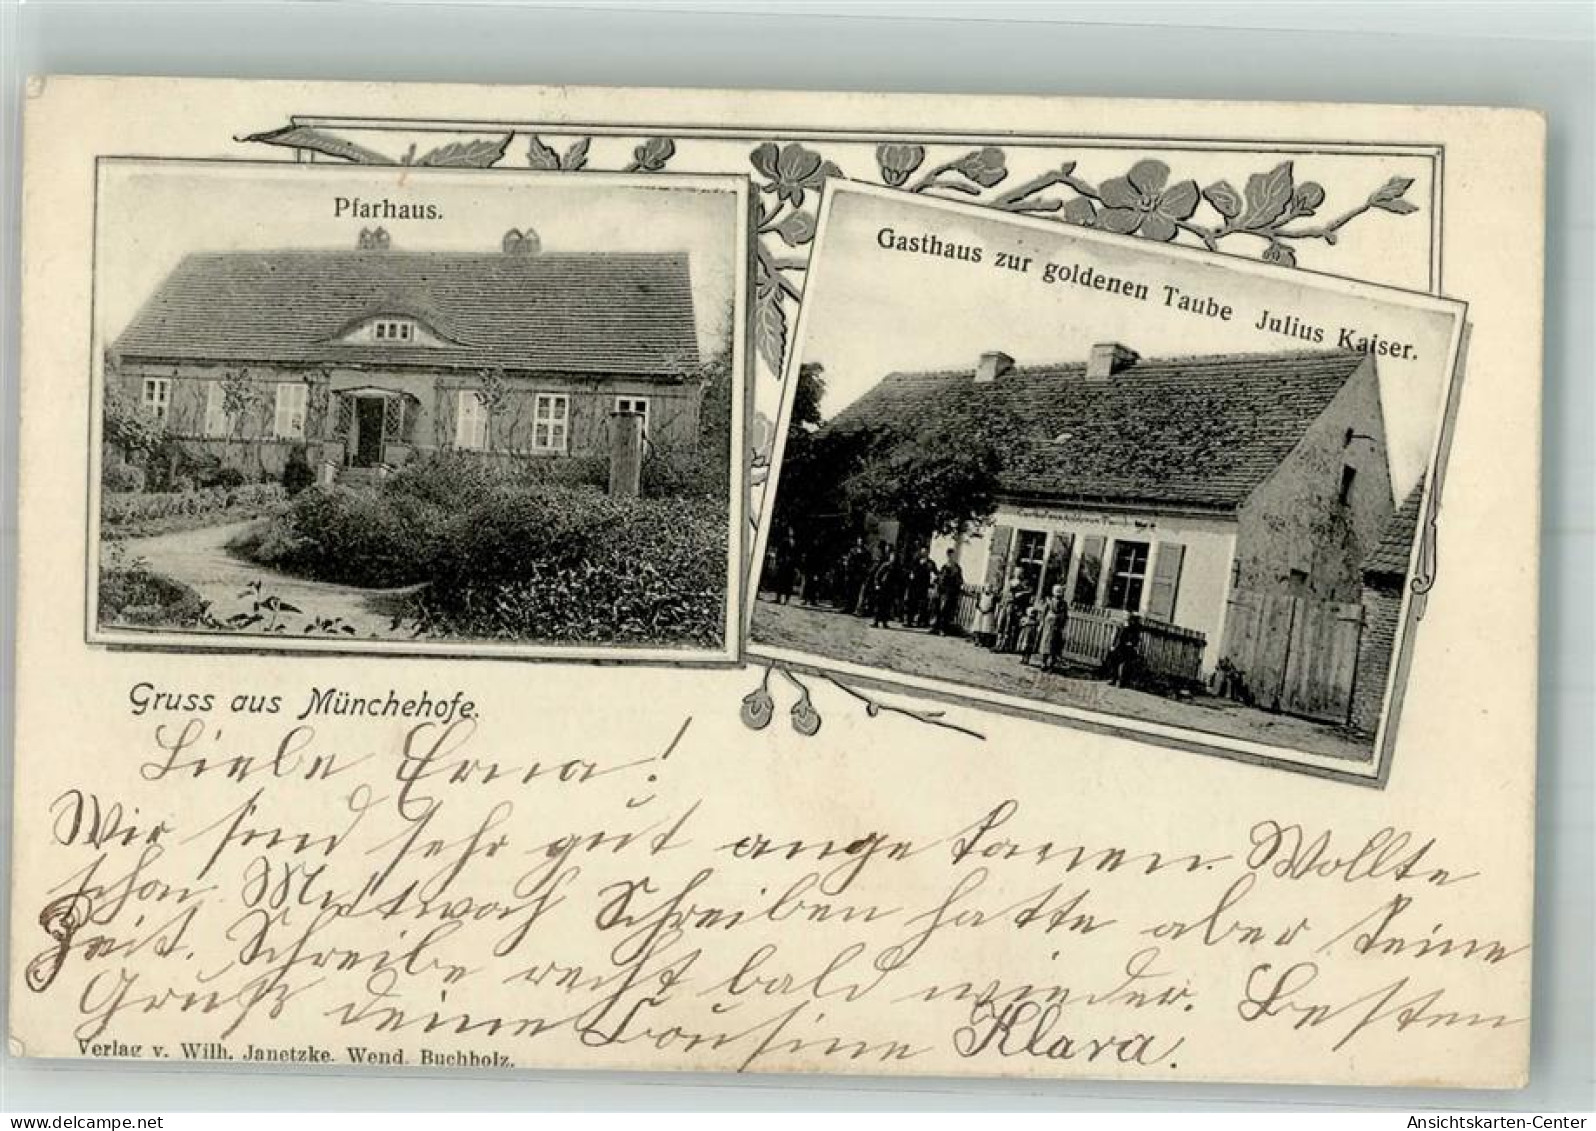 Pfarhaus.
Gasthaus zur goldenen Taube Julius Kaiser.
Gruss aus Münchehofe.
Liebe Erna!
Wir sind sehr gut angekommen. Wollte
schon Mittwoch Schreiben hatte aber keine
Zeit. Schreibe recht bald wieder. Besten
Gruß deine Cousine Klara.
Verlag v. Wilh. Janetzke. Wend. Buchholz.
www.oldthing.de
Ansichtskarten-Center